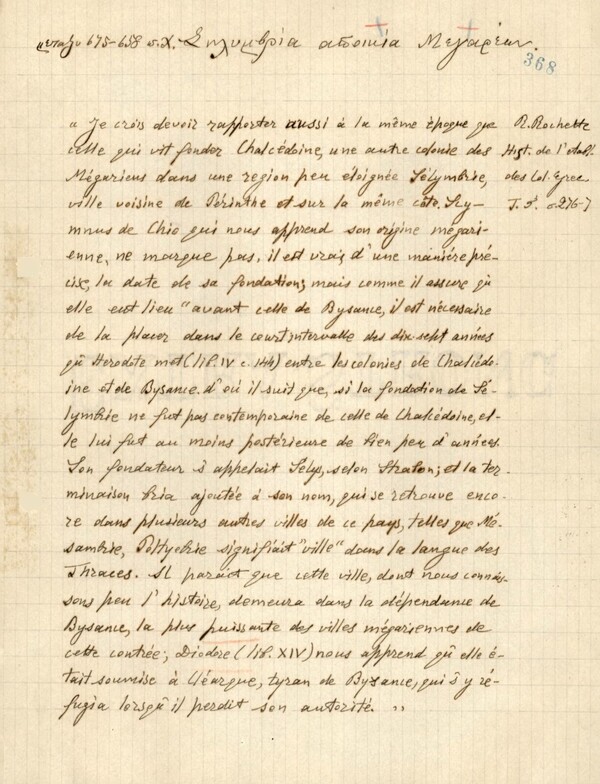 μεταξύ 675-658 π.Χ. Σηλυμβρία αποικία Μεγαρέων.
368
" Je crois devoir rapporter aussi à la même époque que
celle qui vit fonder Chalcédoine, une autre colonie des
Mégariens dans une region peu éloignée Sélymbrie,
ville voisine de Périnthe et sur la même côte. Scy-
mnus de Chio qui nous apprend son origine mégari-
enne, ne marque pas, il est vrai, d'une manière pré-
cise, la date de sa fondation; mais comme il assure qu'
elle eut lieu "avant celle de Bysance, il est nécessaire
de la placer dans le court intervalle des dix-sept années
qu'Herodote met (lib. IV c. 144) entre les colonies de Chalcédo-
ine et de Bysance. d'où il suit que, si la fondation de Sé-
lymbrie ne fut pas contemporaine de celle de Chalcédoine, el-
le lui fut au moins postérieure de bien peu d'années.
Son fondateur s'appelait Sélys, selon Strabon; et la ter-
minaison bria ajoutée à son nom, qui se retrouve enco-
re dans plusieurs autres villes de ce pays, telles que Mé-
sambrie, Poltyobrie signifiait "ville" dans la langue des
Thraces. Il paraît que cette ville, dont nous connais-
sons peu l'histoire, demeura dans la dépendance de
Bysance, la plus puissante des villes mégariennes de
cette contrée; Diodore (lib. XIV) nous apprend qu'elle é-
tait soumise à Cléarque, tyran de Byzance, qui s'y ré-
fugia lorsqu'il perdit son autorité. "
R. Rochette
Hist. de l'établ.
des Col. Grec
T. 3. σ. 276-7